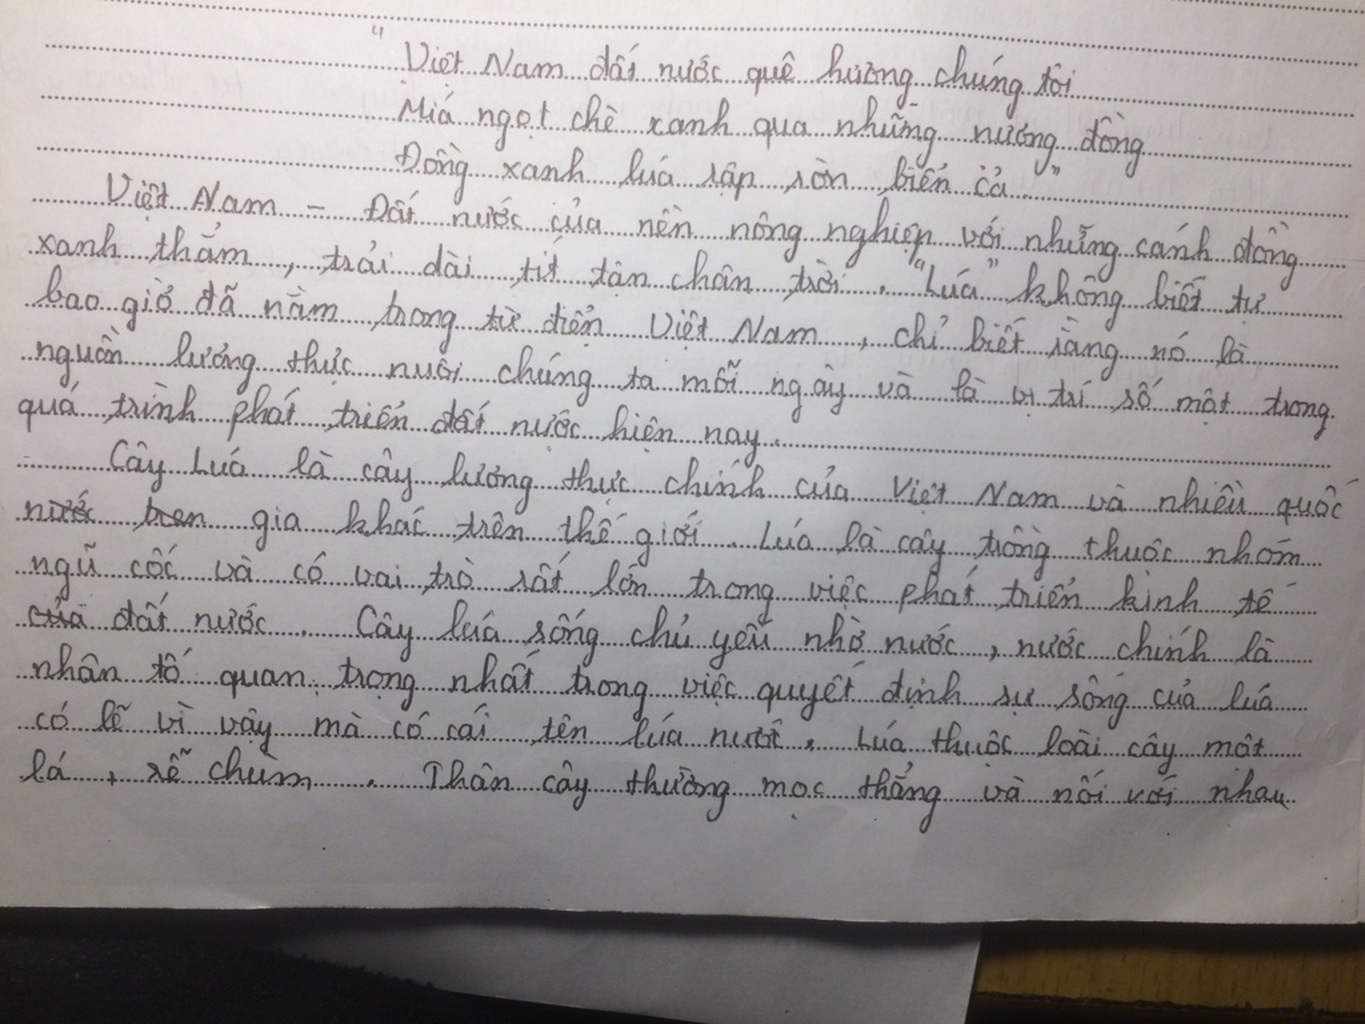 " Việt Nam đất nước quê hương chúng tôi
Miá ngọt chè xanh qua những nương đồng
Đồng xanh lúa rập rờn biển cả "
Việt Nam – Đất nước của nền nông nghiệp với những cánh đồng
xanh thẳm , trải dài tít tận chân trời . "Lúa" không biết tự
bao giờ đã nằm trong từ điển Việt Nam , chỉ biết rằng nó là
nguồn lương thực nuôi chúng ta mỗi ngày và là vị trí số một trong
quá trình phát triển đất nước hiện nay.
Cây Lúa là cây lương thực chính của Việt Nam và nhiều quốc
nước tren gia khác trên thế giới . Lúa là cây trồng thuộc nhóm
ngũ cốc và có vai trò rất lớn trong việc phát triển kinh tế
của đất nước . Cây lúa sống chủ yếu nhờ nước , nước chính là
nhân tố quan trọng nhất trong việc quyết định sự sống của lúa
có lẽ vì vậy mà có cái tên lúa nước . Lúa thuộc loài cây một
lá , rễ chùm . Thân cây thường mọc thẳng và nối với nhau